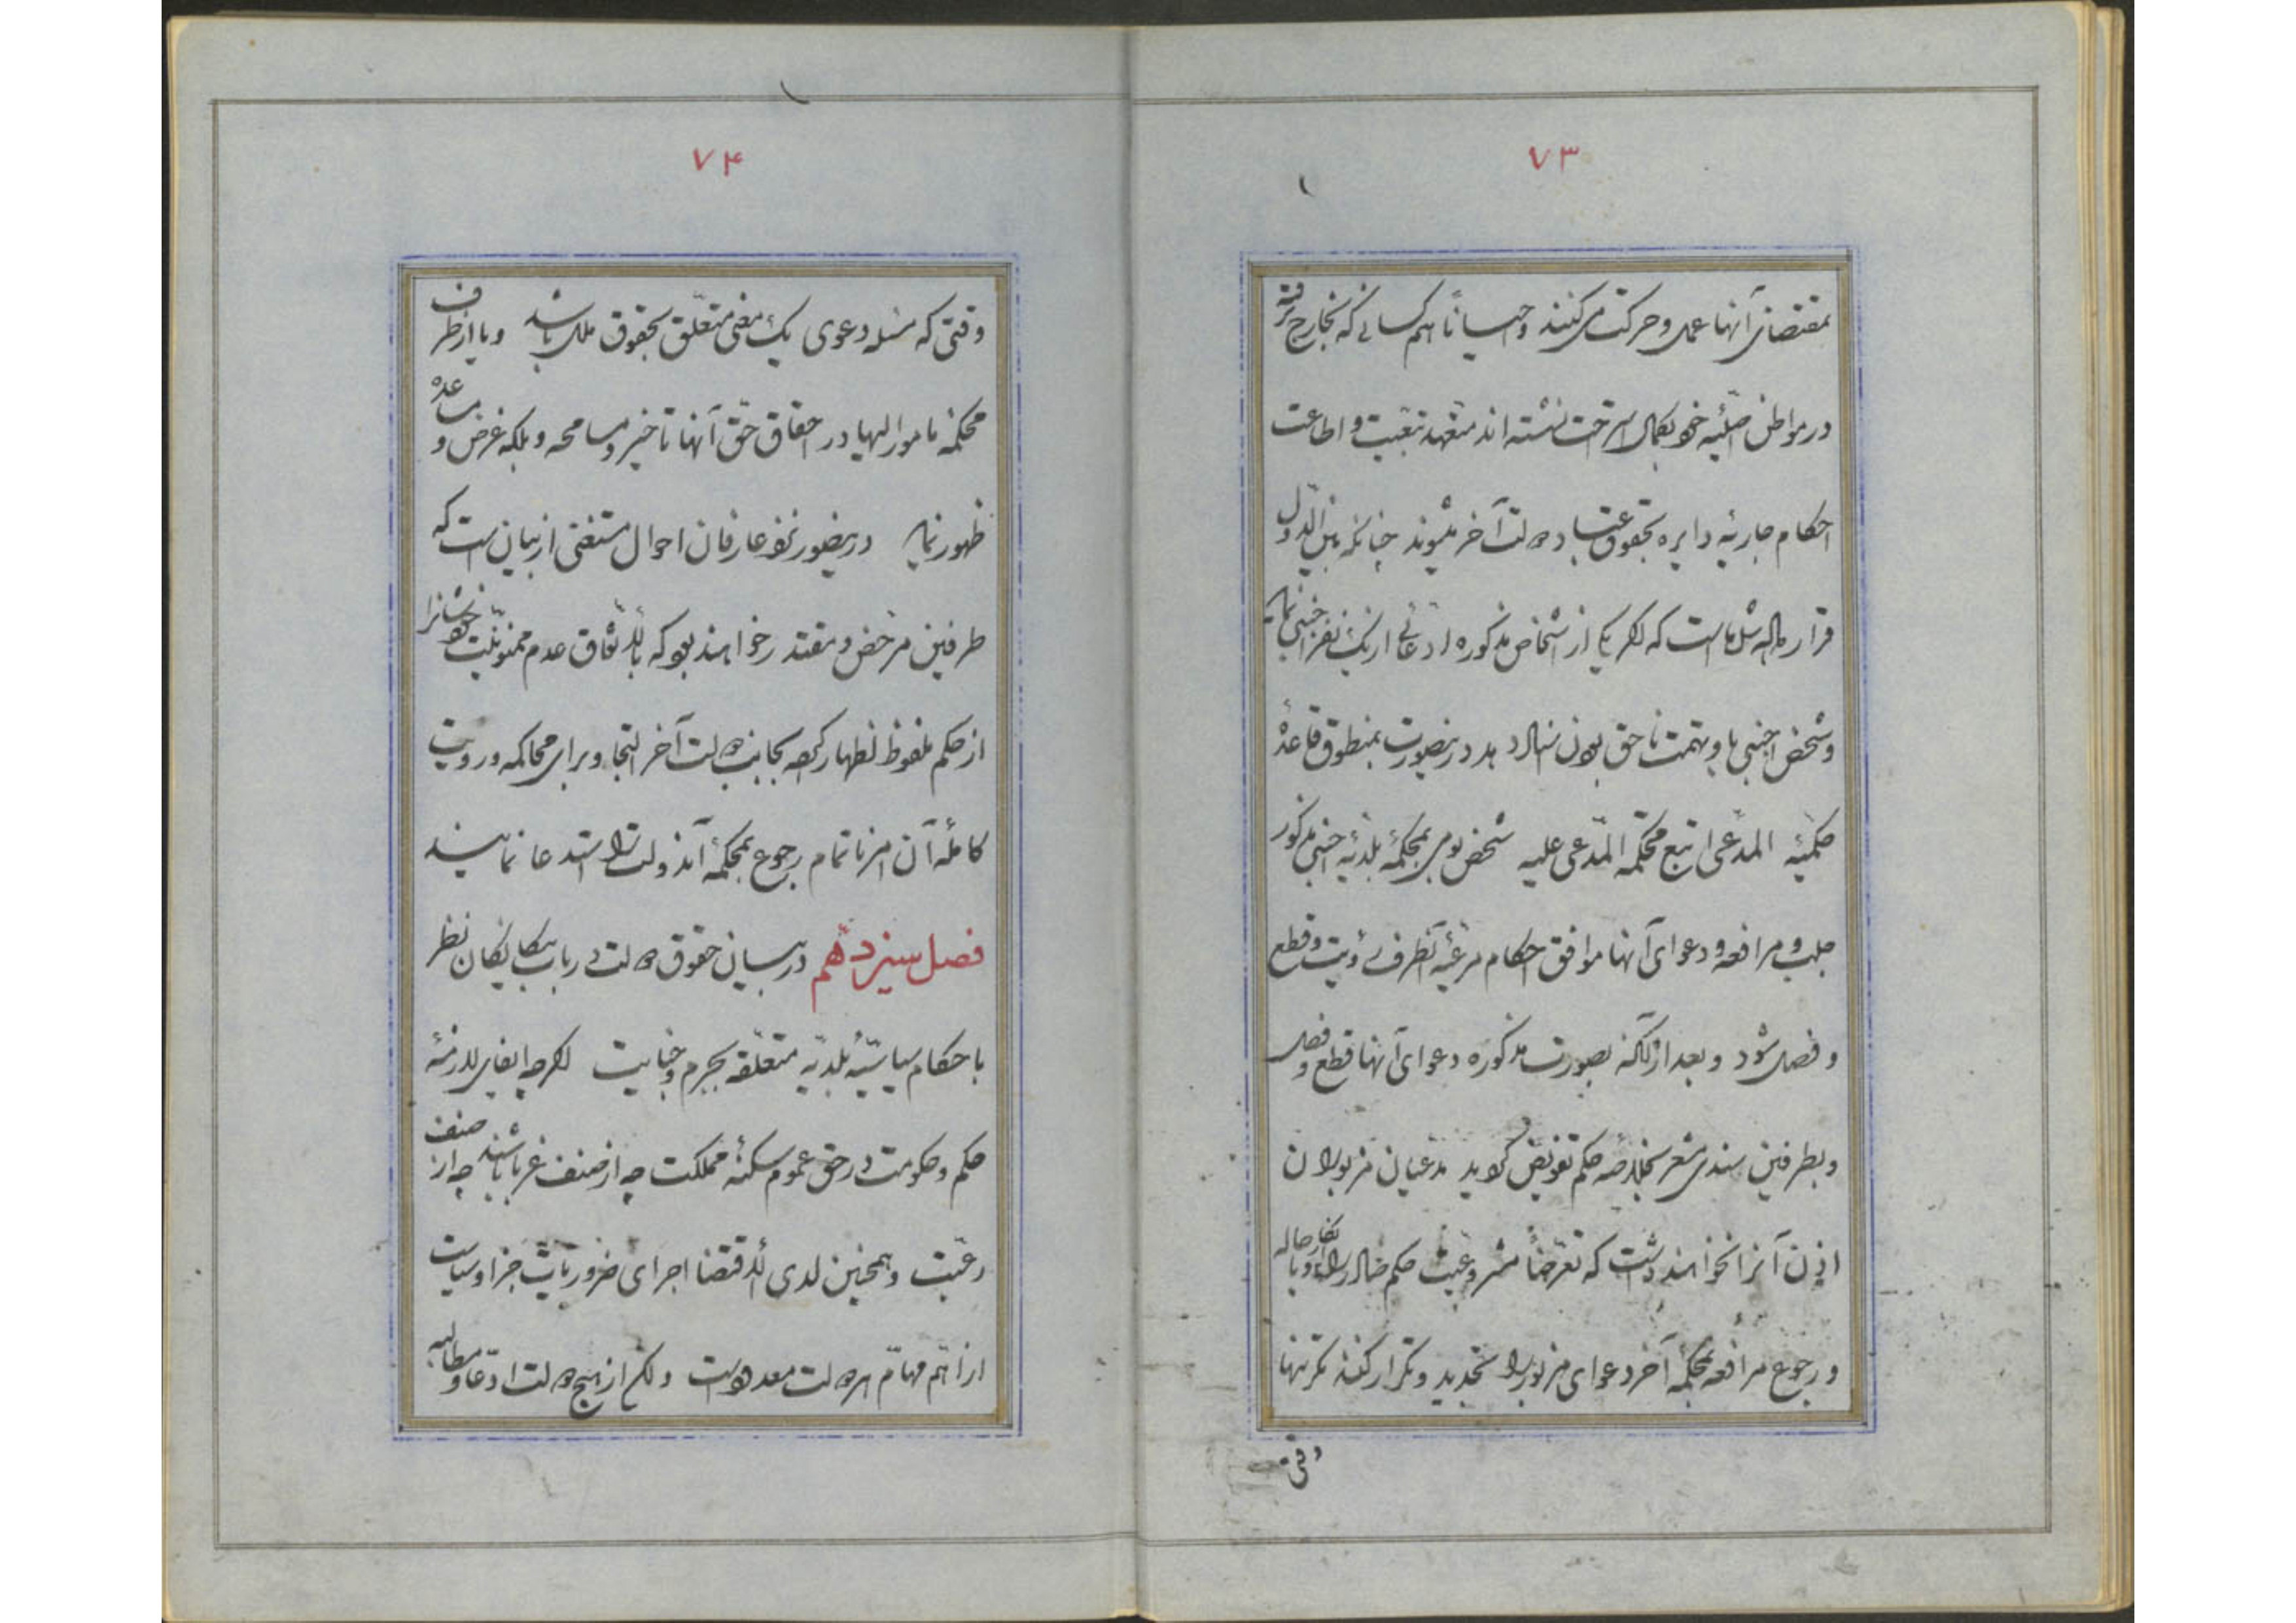 ۷۳
بمقتضای آنها عمل و حرکت میکنند و احیاناً هم کسانی که بخارج نرفته
در مواطن اصلیه خود بکمال استراحت نشسته اند متعهد تبعیت و اطاعت
احکام جاریه دایره بحقوق عباد دولت آخر میشوند چنانکه بین الدول
قرارداده شده است که اگر یکی از اشخاص مذکوره ادعائی از یک نفر اجنبی نماید
و شخص اجنبی با و بتهمت ناحق بودن نسازد در اینصورت بمنطوق قاعدهٔ
حکمیه المدعی اتبع محکمه المدعی علیه شخص بومی بمحکمهٔ بلدیه اجنبی مذکور
جلب و مرافعه و دعوای آنها موافق احکام مرعیه آنطرف رؤیت و قطع
و فصل شود و بعد از آنکه بصورت مذکوره دعوای آنها قطع و فصل
و بطرفین سندی مشعر بخلاصه حکم تفویض گردید مدعیان مزبور
اذن آنرا نخواهند داشت که تعرضاً مشروعیت حکم صادر را انکار و با احاله
و رجوع مرافعه بمحکمهٔ آخر دعوای مزبور را تجدید و تکرار کنند مگر تنها
وقتی
۷۴
وقتی که مسئله دعوی یک معنی متعلق بحقوق ملل باشد و یا از طرف
محکمهٔ مأمور الیها در احقاق حق آنها تأخیر و مسامحه و بلکه غرض و مساعده
ظهور نماید در اینصورت نزد عارفان احوال مستغنی از بیان است که
طرفین مرخص و مقتدر خواهند بود که بالاتفاق عدم ممنونیت خودشانرا
از حکم ملفوظ اظهار کرده بجانب دولت آخر التجا و برای محاکمه و رؤیت
کاملهٔ آن امر ناتمام رجوع بمحکمهٔ آندولت را استدعا نمایند
فصل سیزدهم در بیان حقوق دولت در باب بیگانگان نظر
باحکام سیاسیهٔ بلدیه متعلقه بجرم و جنایت اگرچه ایفای لازمهٔ
حکم و حکومت در حق عموم سکنهٔ مملکت چه از صنف غربا باشند چه از صنف
رعیت و همچنین لدی الاقتضا اجرای ضروریات جزا و سیاست
از اهم مهام هر دولت معدود است ولکن از هیچ دولت ادعا و مطالبه